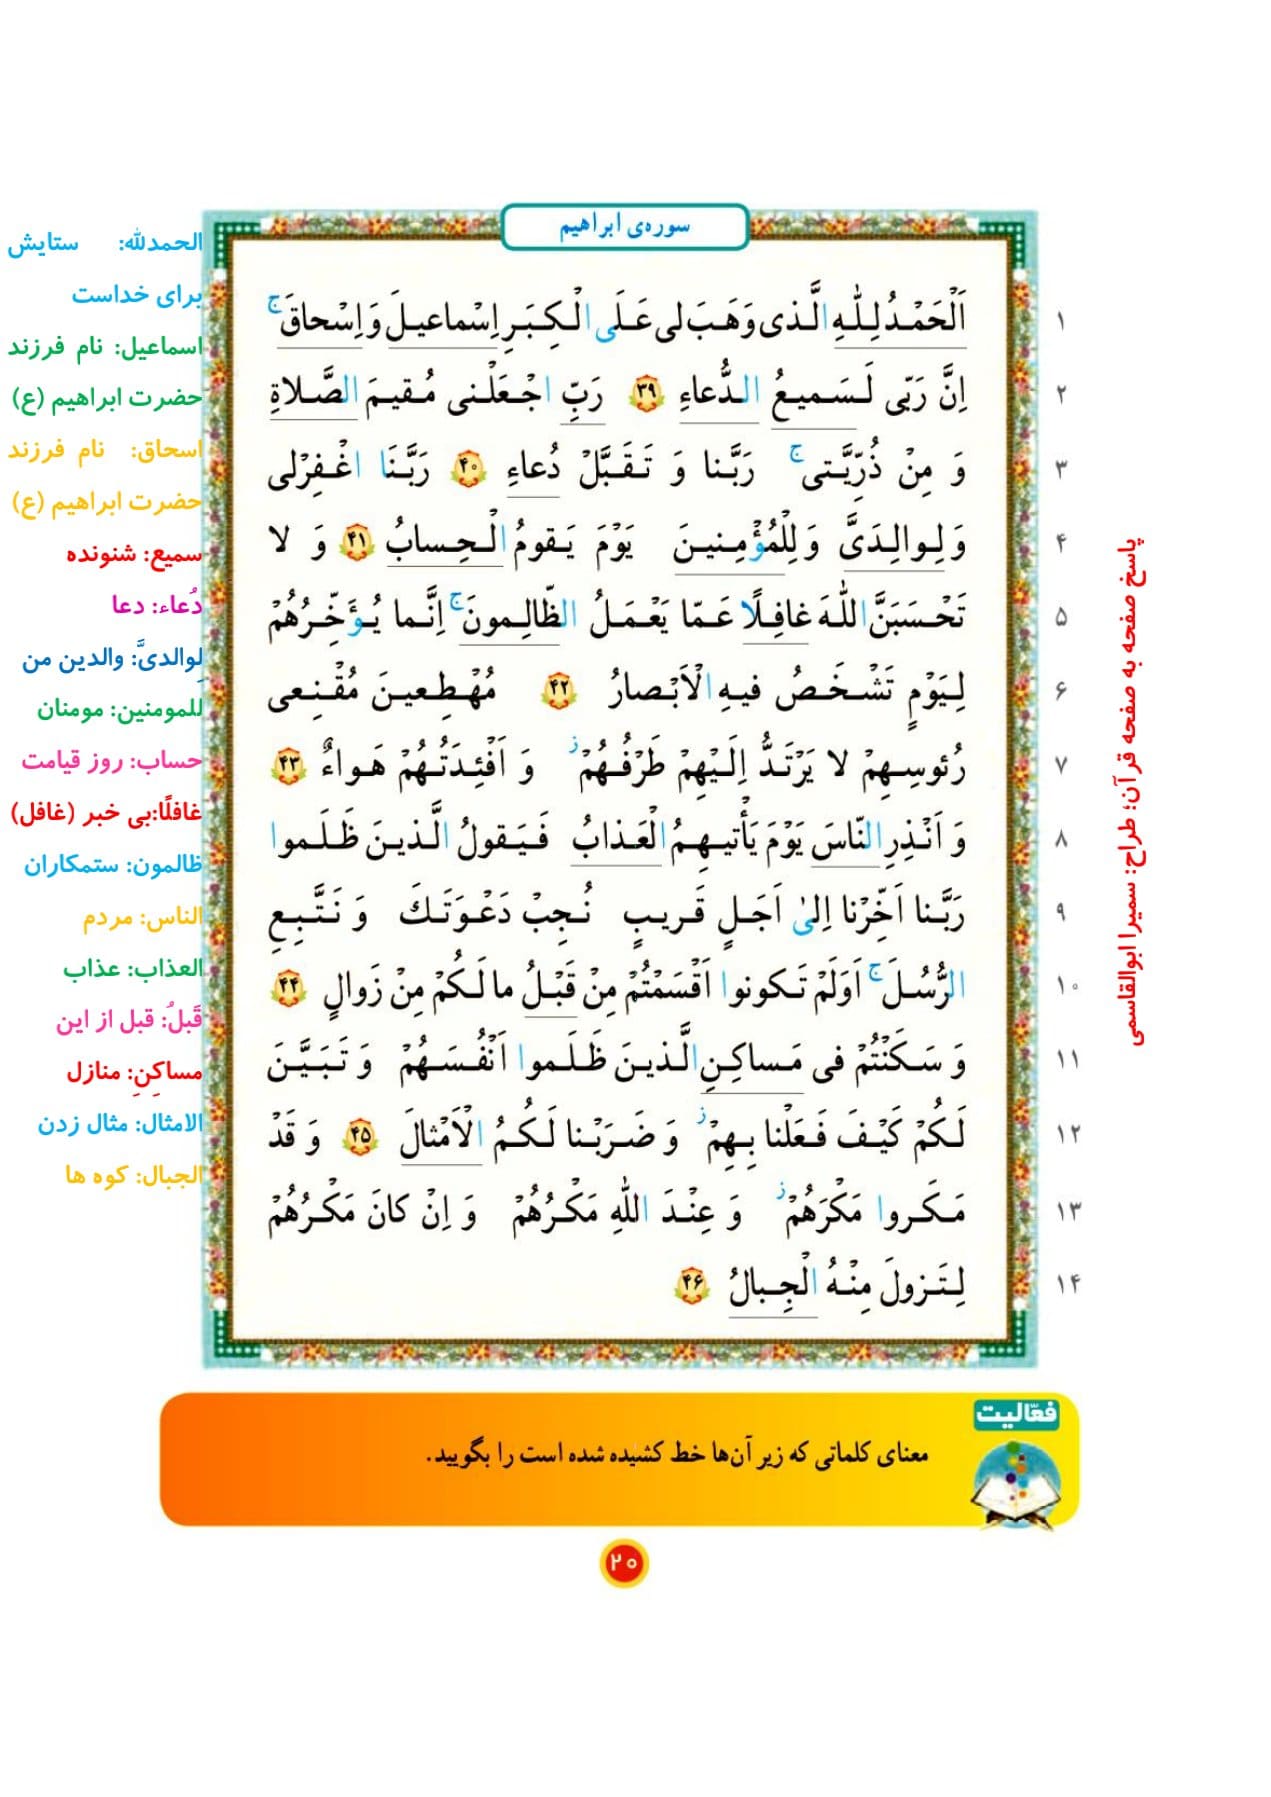 سوره‌ی ابراهیم
۱
اَلْحَمْدُ لِلّٰهِ الَّذی وَهَبَ لی عَلَی الْکِبَرِ اِسْماعیلَ وَ اِسْحاقَ ج
۲
اِنَّ رَبّی لَسَمیعُ الدُّعاءِ ۳۹ رَبِّ اجْعَلْنی مُقیمَ الصَّلاةِ
۳
وَ مِنْ ذُرِّیَّتی ج رَبَّنا وَ تَقَبَّلْ دُعاءِ ۴۰ رَبَّنَا اغْفِرْلی
۴
وَ لِوالِدَیَّ وَ لِلْمُؤْمِنینَ یَوْمَ یَقومُ الْحِسابُ ۴۱ وَ لا
۵
تَحْسَبَنَّ اللّٰهَ غافِلًا عَمّا یَعْمَلُ الظّالِمونَ ج اِنَّما یُؤَخِّرُهُمْ
۶
لِیَوْمٍ تَشْخَصُ فیهِ الْاَبْصارُ ۴۲ مُهْطِعینَ مُقْنِعی
۷
رُئوسِهِمْ لا یَرْتَدُّ اِلَیْهِمْ طَرْفُهُمْ ز وَ اَفْئِدَتُهُمْ هَواءٌ ۴۳
۸
وَ اَنْذِرِ النّاسَ یَوْمَ یَأْتیهِمُ الْعَذابُ فَیَقولُ الَّذینَ ظَلَموا
۹
رَبَّنا اَخِّرْنا اِلیٰ اَجَلٍ قَریبٍ نُجِبْ دَعْوَتَکَ وَ نَتَّبِعِ
۱۰
الرُّسُلَ ج اَوَلَمْ تَکونوا اَقْسَمْتُمْ مِنْ قَبْلُ ما لَکُمْ مِنْ زَوالٍ ۴۴
۱۱
وَ سَکَنْتُمْ فی مَساکِنِ الَّذینَ ظَلَموا اَنْفُسَهُمْ وَ تَبَیَّنَ
۱۲
لَکُمْ کَیْفَ فَعَلْنا بِهِمْ ز وَ ضَرَبْنا لَکُمُ الْاَمْثالَ ۴۵ وَ قَدْ
۱۳
مَکَروا مَکْرَهُمْ ز وَ عِنْدَ اللّٰهِ مَکْرُهُمْ وَ اِنْ کانَ مَکْرُهُمْ
۱۴
لِتَزولَ مِنْهُ الْجِبالُ ۴۶
الحمدلله: ستایش
برای خداست
اسماعیل: نام فرزند
حضرت ابراهیم (ع)
اسحاق: نام فرزند
حضرت ابراهیم (ع)
سمیع: شنونده
دُعاء: دعا
لِوالدیَّ: والدین من
للمومنین: مومنان
حساب: روز قیامت
غافلًا:بی خبر (غافل)
ظالمون: ستمکاران
الناس: مردم
العذاب: عذاب
قَبلُ: قبل از این
مساکِنِ: منازل
الامثال: مثال زدن
الجبال: کوه ها
پاسخ صفحه به صفحه قرآن؛ طراح: سمیرا ابوالقاسمی
فعّالیت
معنای کلماتی که زیر آن‌ها خط کشیده شده است را بگویید.
۲۰